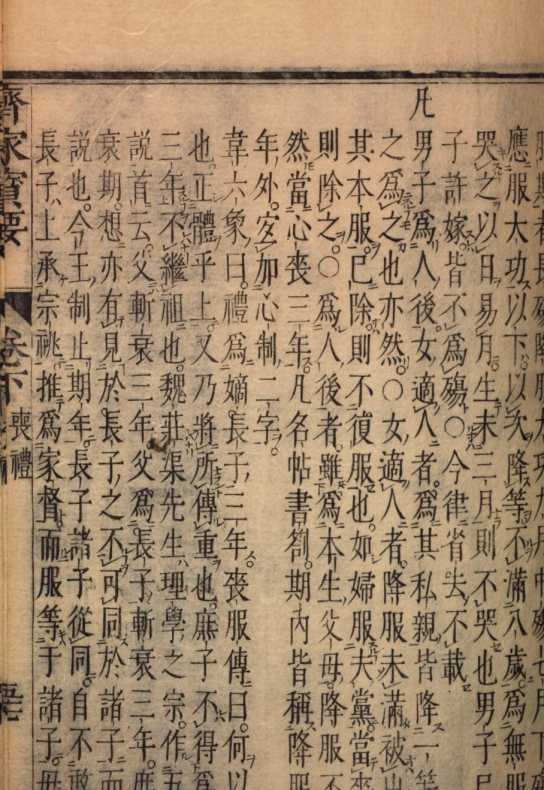 服期者長殤降服大功九月中殤七月下
應服大功以下以次降等不滿八歲爲無服
哭之以日易月生未三月則不哭也男子已
子許嫁皆不爲殤○今律省去不載
凡男子爲人後女適人者爲其私親皆降一等
之爲之也亦然○女適人者降服未滿被出
其本服已除則不復服也如婦服夫黨當喪
則除之○爲人後者雖爲本生父母降服不
然當心喪三年凡名帖書劄期內皆稱降服
年外安加心制二字
韋六象曰禮爲嫡長子三年喪服傳曰何以
也正體乎上又乃將所傳重也庶子不得爲
三年不繼祖也魏莊渠先生理學之宗作五
說首云父斬衰三年父爲長子斬衰三年庶
衰期想亦有見於長子之不可同於諸子而
說也今王制止期年長子諸子從同自不敢
長子上承宗祧推爲家督而服等于諸子毋
齊家寶要 卷下 喪禮